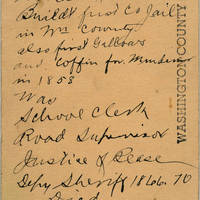 Buildt first co Jail
in Wn Cowunty.
also first Gallows
and coffin for
in 1853
Was
School Clerk
Road Supervisor
Justice of Pease
Depy Sheriff 1866. 70
WASHINGTON COUNTY